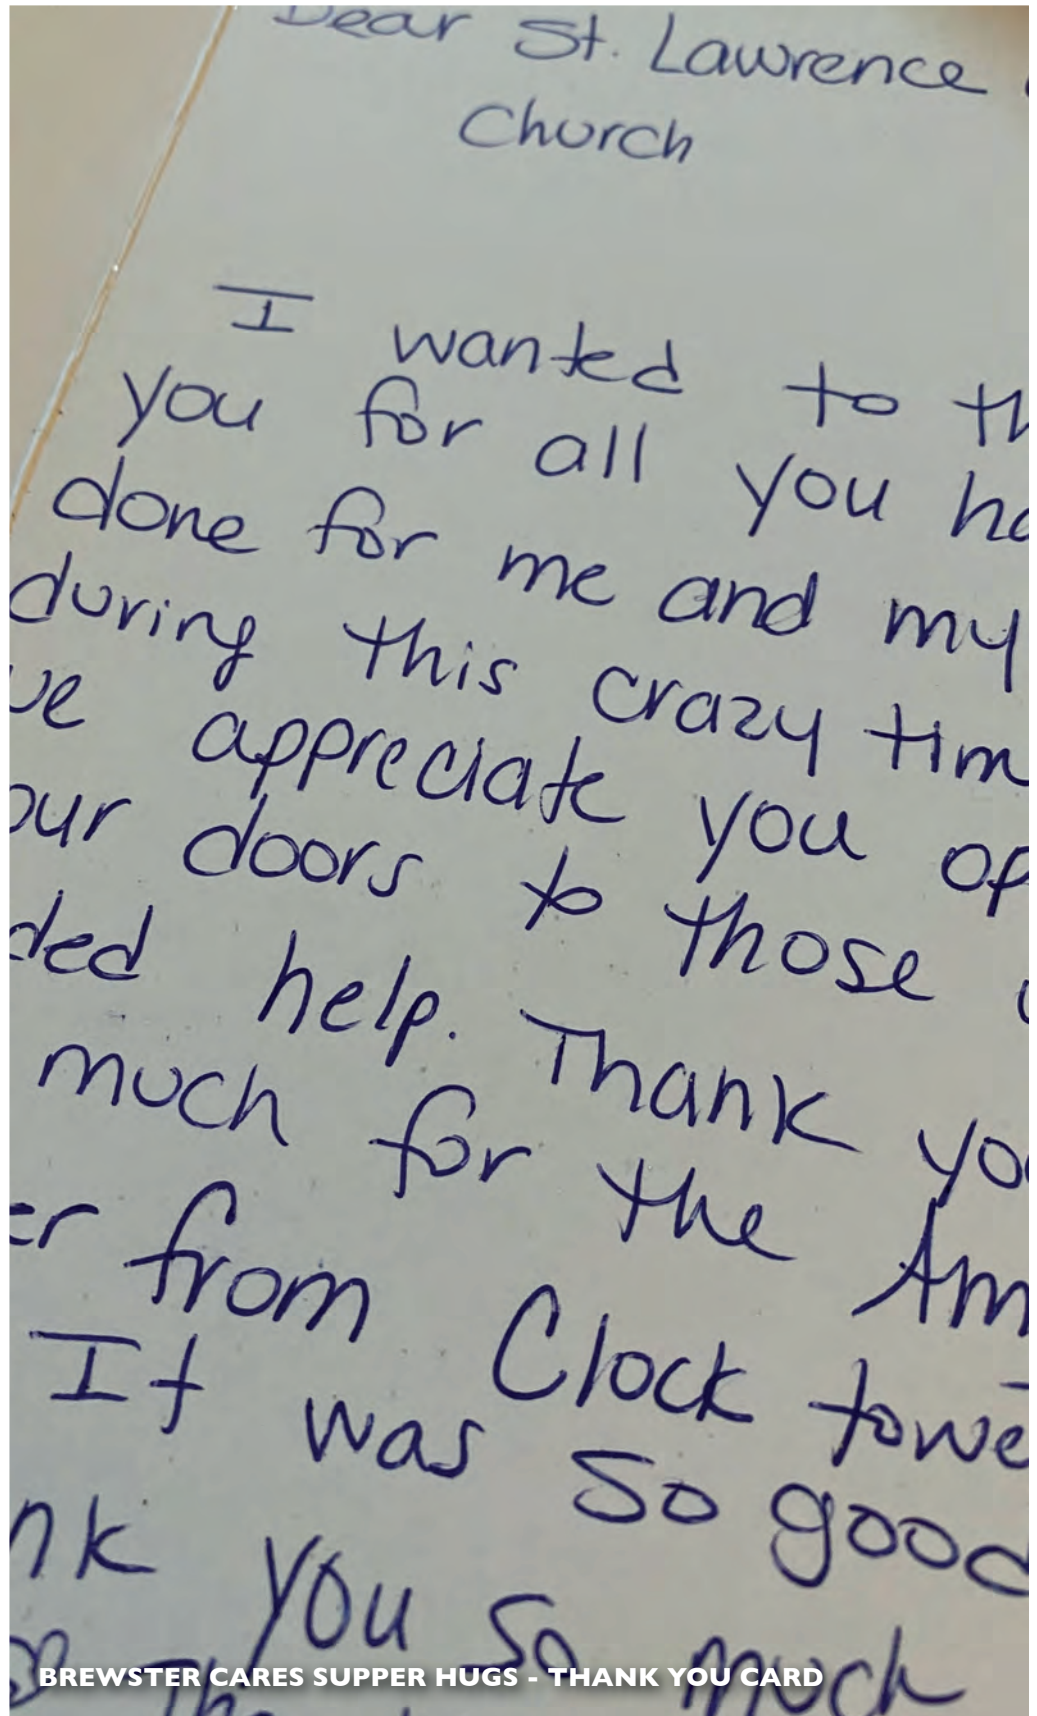 Dear St. Lawrence
Church
I wanted to th
you for all you ha
done for me and my
during this crazy tim
ve appreciate you op
our doors to those
ded help. Thank yo
much for the Am
er from Clock towe
It was so good
nk you so much
BREWSTER CARES SUPPER HUGS - THANK YOU CARD